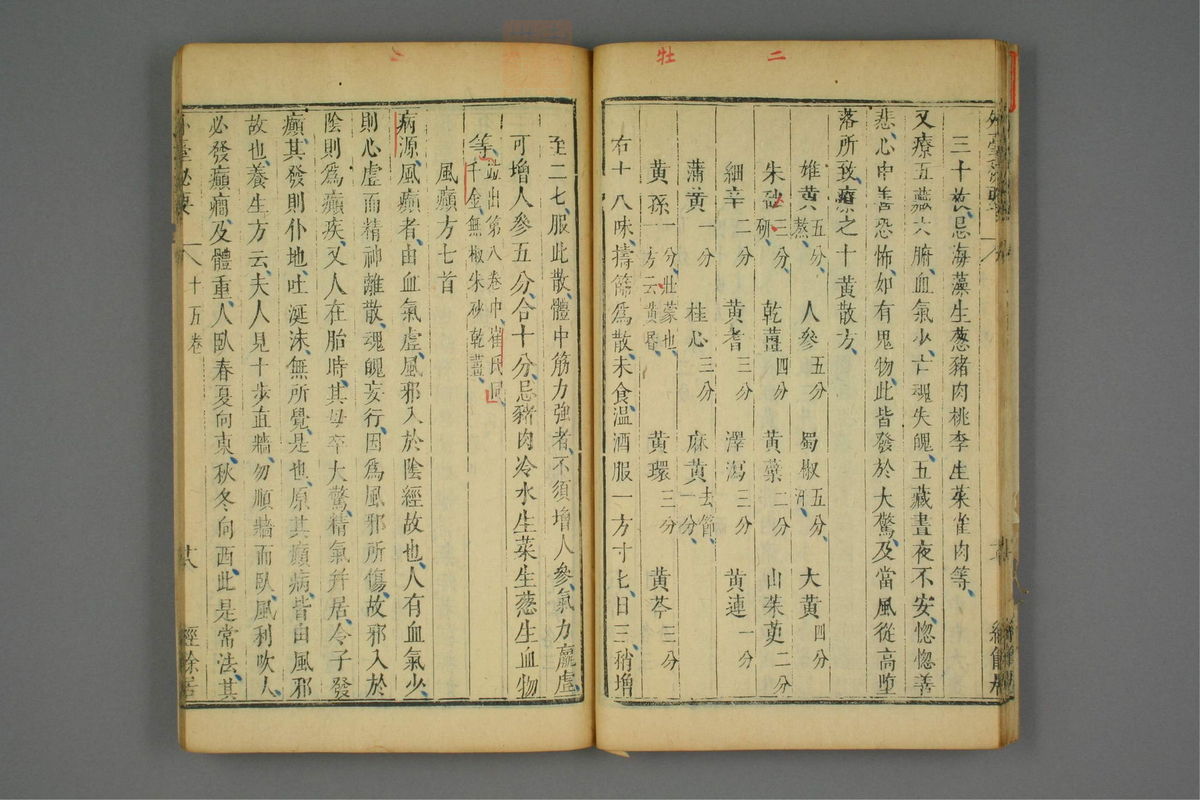 二
牡
三十枚、忌海藻生葱豬肉桃李生菜雀肉等、
又療五藏六腑、血氣少、亡魂失魄、五藏晝夜不安、惚惚善
悲、心中善恐怖、如有鬼物、此皆發於大驚、及當風從高墮
落所致、療之十黃散方、
雄黃五分、熬 人參五分 蜀椒五分、汗、 大黃四分
朱砂三分、研 乾薑四分 黃蘗二分 山茱萸二分
細辛二分 黃耆三分 澤瀉三分 黃連一分
蒲黃一分 桂心三分 麻黃去節、一分 
黃孫一分、牡蒙也、一方云黃昏、 黃環三分 黃芩三分
右十八味、擣篩為散、未食溫酒服一方寸匕、日三、稍增
至二匕、服此散、體中筋力強者、不須增人參、氣力羸虛、
可增人參五分、合十分、忌豬肉冷水生菜生蔥生血物
等、並出第八卷中、崔氏同、千金無椒朱砂乾薑、
風癲方七首
病源、風癲者、由血氣虛、風邪入於陰經故也、人有血氣少、
則心虛而精神離散、魂魄妄行、因為風邪所傷、故邪入於
陰則為癲疾、又人在胎時、其母卒大驚、精氣并居、令子發
癲、其發則仆地、吐涎沫、無所覺是也、原其癲病、皆由風邪
故也、養生方云、夫人見十步直牆、勿順牆而臥、風利吹人、
必發癲癇、及體重、人臥春夏向東、秋冬向西、此是常法、其
十五卷
經餘居